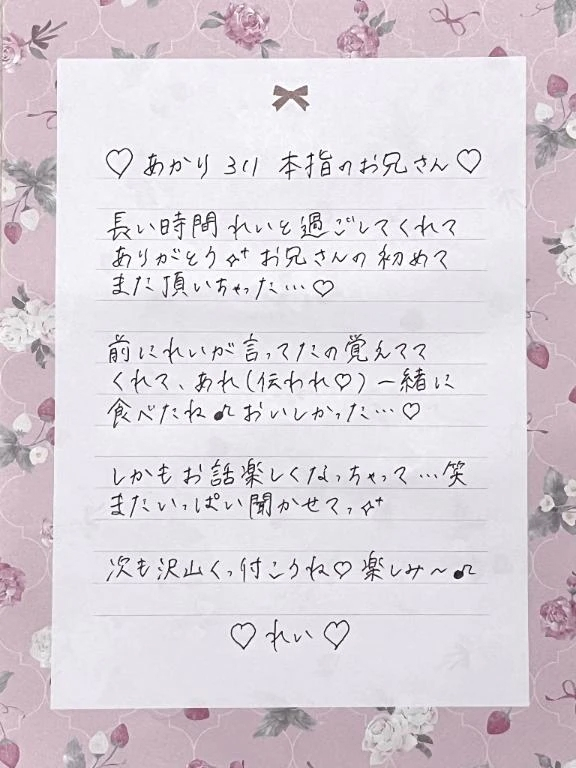 ♡ あかり 311 本指のお兄さん ♡
長い時間 れいと過ごしてくれて
ありがとう✨ お兄さんの初めて
また頂いちゃった…♡
前にれいが言ってたの覚えてて
くれて、あれ(伝われ♡)一緒に
食べたね♪ おいしかった…♡
しかもお話楽しくなっちゃって…笑
またいっぱい聞かせてっ✨
次も沢山くっ付こうね♡ 楽しみ〜♪
♡ れい ♡